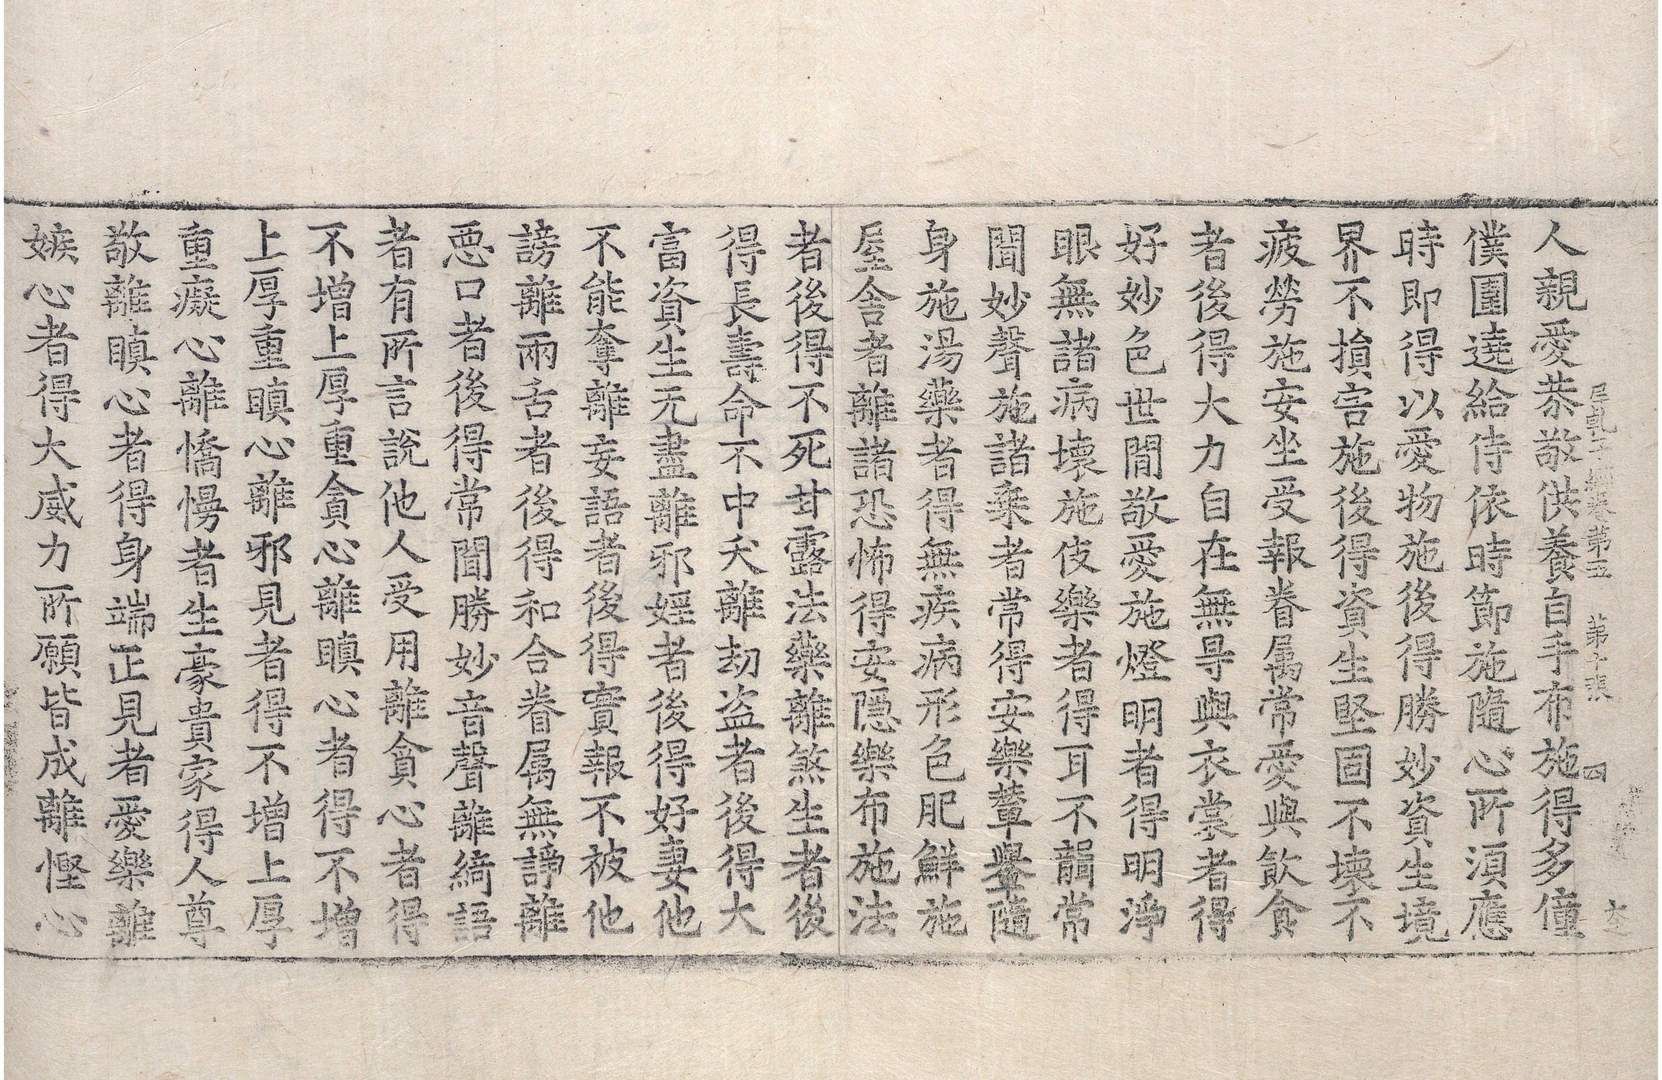 尼乹子經卷第五　第十張　四
人親愛恭敬供養自手布施得多僮
僕圍遶給侍依時節施隨心所須應
時即得以愛物施後得勝妙資生境
界不損害施後得資生堅固不壞不
疲勞施安坐受報眷属常愛與飲食
者後得大力自在無㝵與衣裳者得
好妙色世間敬愛施燈明者得明淨
眼無諸病壞施伎樂者得耳不聾常
聞妙聲施諸乗者常得安樂輦轝隨
身施湯藥者得無疾病形色肥鮮施
屋舍者離諸恐怖得安隱樂布施法
者後得不死甘露法藥離煞生者後
得長壽命不中夭離劫盗者後得大
富資生无盡離邪婬者後得好妻他
不能奪離妄語者後得實報不被他
謗離兩舌者後得和合眷属無諍離
惡口者後得常聞勝妙音聲離綺語
者有所言說他人受用離貪心者得
不增上厚重貪心離瞋心者得不增
上厚重瞋心離邪見者得不增上厚
重癡心離憍慢者生豪貴家得人尊
敬離瞋心者得身端正見者愛樂離
嫉心者得大威力所願皆成離慳心